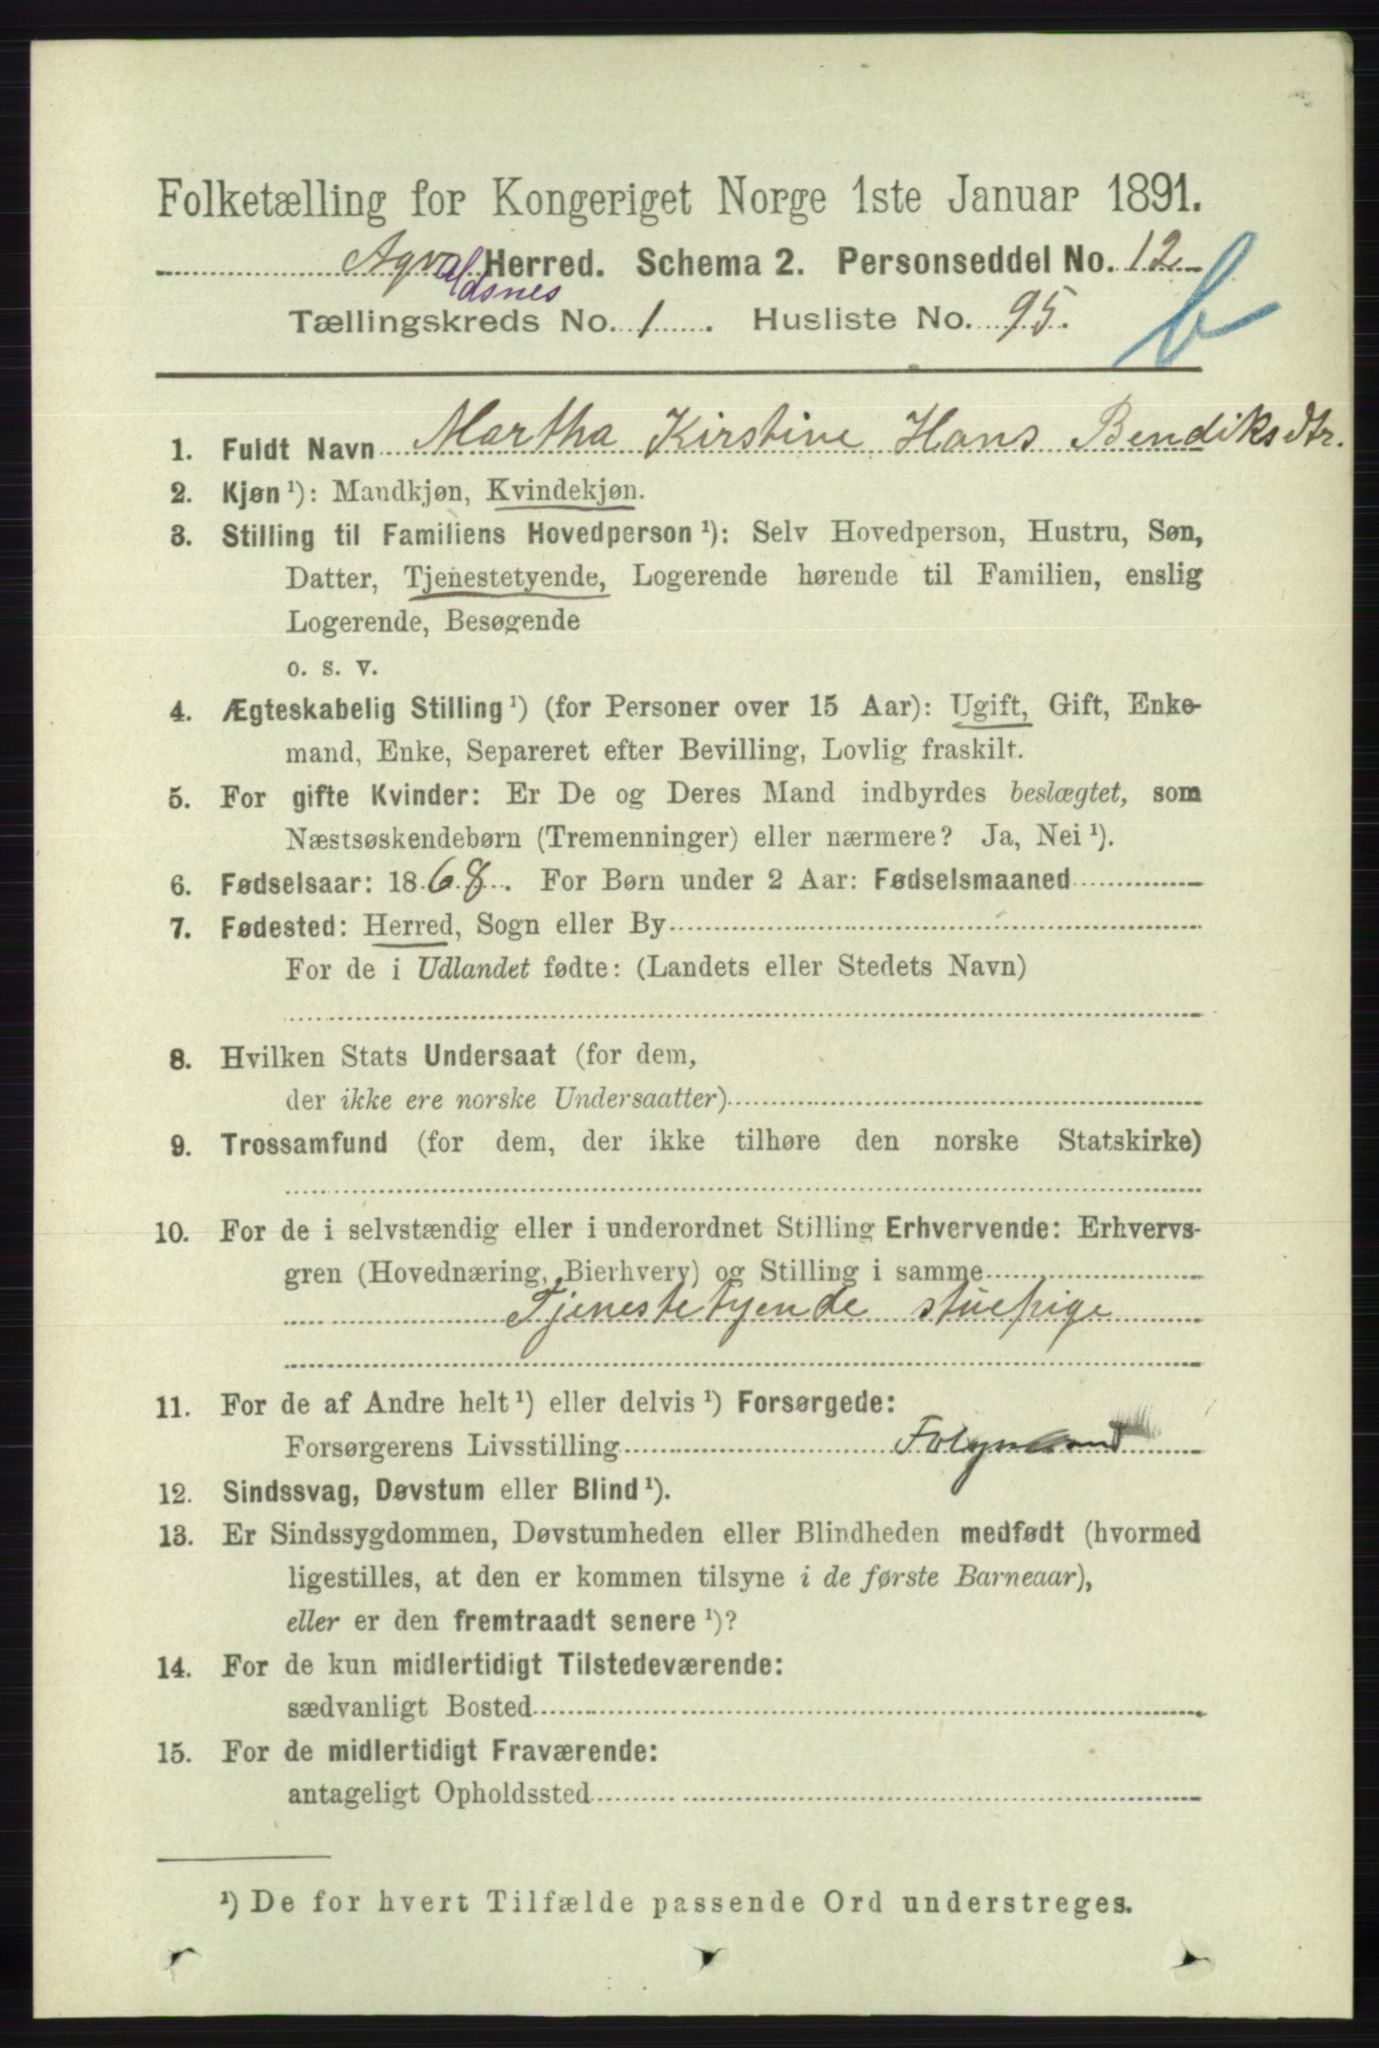 Folketælling for Kongeriget Norge 1ste Januar 1891.
Agvaldsnes Herred. Schema 2. Personseddel No. 12
Tællingskreds No. 1. Husliste No. 95. b
1. Fuldt Navn Martha Kirstine Hans Bendiksdtr.
2. Kjøn ¹): Mandkjøn, Kvindekjøn.
3. Stilling til Familiens Hovedperson ¹): Selv Hovedperson, Hustru, Søn,
Datter, Tjenestetyende, Logerende hørende til Familien, enslig
Logerende, Besøgende
o. s. v.
4. Ægteskabelig Stilling ¹) (for Personer over 15 Aar): Ugift, Gift, Enke-
mand, Enke, Separeret efter Bevilling, Lovlig fraskilt.
5. For gifte Kvinder: Er De og Deres Mand indbyrdes beslægtet, som
Næstsøskendebørn (Tremenninger) eller nærmere? Ja, Nei ¹).
6. Fødselsaar: 1868. For Børn under 2 Aar: Fødselsmaaned
7. Fødested: Herred, Sogn eller By
For de i Udlandet fødte: (Landets eller Stedets Navn)
8. Hvilken Stats Undersaat (for dem,
der ikke ere norske Undersaatter)
9. Trossamfund (for dem, der ikke tilhøre den norske Statskirke)
10. For de i selvstændig eller i underordnet Stilling Erhvervende: Erhvervs-
gren (Hovednæring, Bierhverv) og Stilling i samme
Tjenestetyende stuepige
11. For de af Andre helt ¹) eller delvis ¹) Forsørgede:
Forsørgerens Livsstilling
12. Sindssvag, Døvstum eller Blind ¹).
13. Er Sindssygdommen, Døvstumheden eller Blindheden medfødt (hvormed
ligestilles, at den er kommen tilsyne i de første Barneaar),
eller er den fremtraadt senere ¹)?
14. For de kun midlertidigt Tilstedeværende:
sædvanligt Bosted
15. For de midlertidigt Fraværende:
antageligt Opholdssted
¹) De for hvert Tilfælde passende Ord understreges.